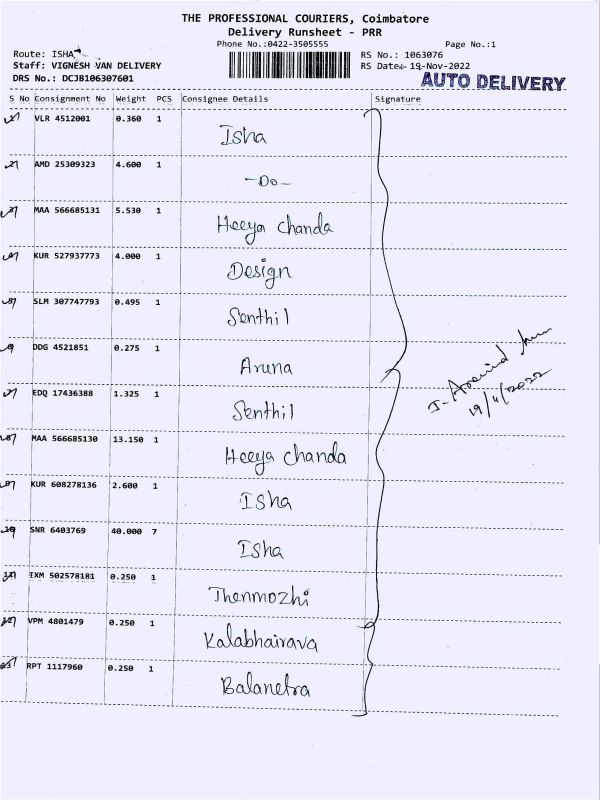 THE PROFESSIONAL COURIERS, Coimbatore
Delivery Runsheet - PRR
Phone No.:0422-3505555 Page No.:1
Route: ISHA RS No.: 1063076
Staff: VIGNESH VAN DELIVERY RS Date: 19-Nov-2022
DRS No.: DCJB106307601 AUTO DELIVERY
S No Consignment No Weight PCS Consignee Details Signature
1 VLR 4512001 0.360 1 Isha
2 AMD 25309323 4.600 1 -Do-
3 MAA 566685131 5.530 1 Heeya Chanda
4 KUR 527937773 4.000 1 Design
5 SLM 307747793 0.495 1 Senthil
6 DDG 4521851 0.275 1 Aruna
7 EDQ 17436388 1.325 1 Senthil
8 MAA 566685130 13.150 1 Heeya Chanda
9 KUR 608278136 2.600 1 Isha
10 SNR 6403769 40.000 7 Isha
11 IXM 502578181 0.250 1 Thenmozhi
12 VPM 4801479 0.250 1 Kalabhairava
13 RPT 1117960 0.250 1 Balanetra
J. Aravind
19/11/2022